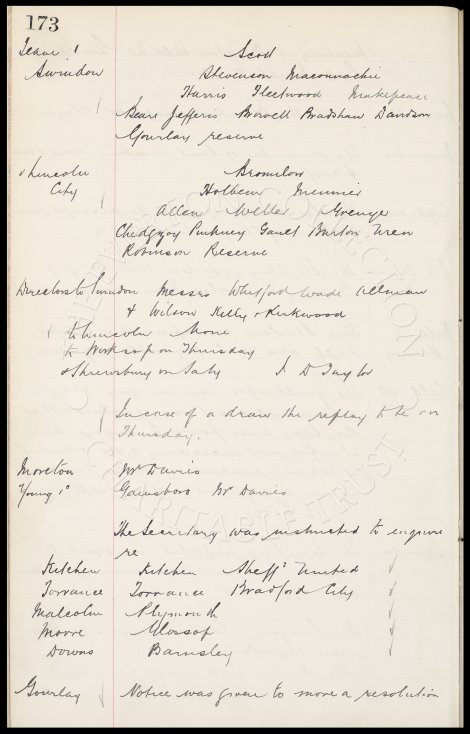 173
Team 1
Swindon
Scott
Stevenson Maconnachie
Harris Fleetwood Makepeace
Beare Jefferis Browell Bradshaw Davidson
Gourlay reserve
v Lincoln
City
Bromilow
Holbem Meunier
Allen Weller Grenyer
Chedgzoy Pinkney Gault Burton Wren
Robinson Reserve
Directors to Swindon Messrs Whitford Wade Allman
& Wilson Kelly & Kirkwood
to Lincoln None
to Worksop on Thursday
& Shrewsbury on Saty J D Taylor
In case of a draw the replay to be on
Thursday.
Moreton Mr Davies
Young 1º Gainsboro Mr Davies
The Secretary was instructed to enquire
re
Kitchen Kitchen Sheffd United
Torrance Torrance Bradford City
Malcolm Plymouth
Moore Glossop
Downs Barnsley
Gourlay Notice was given to move a resolution